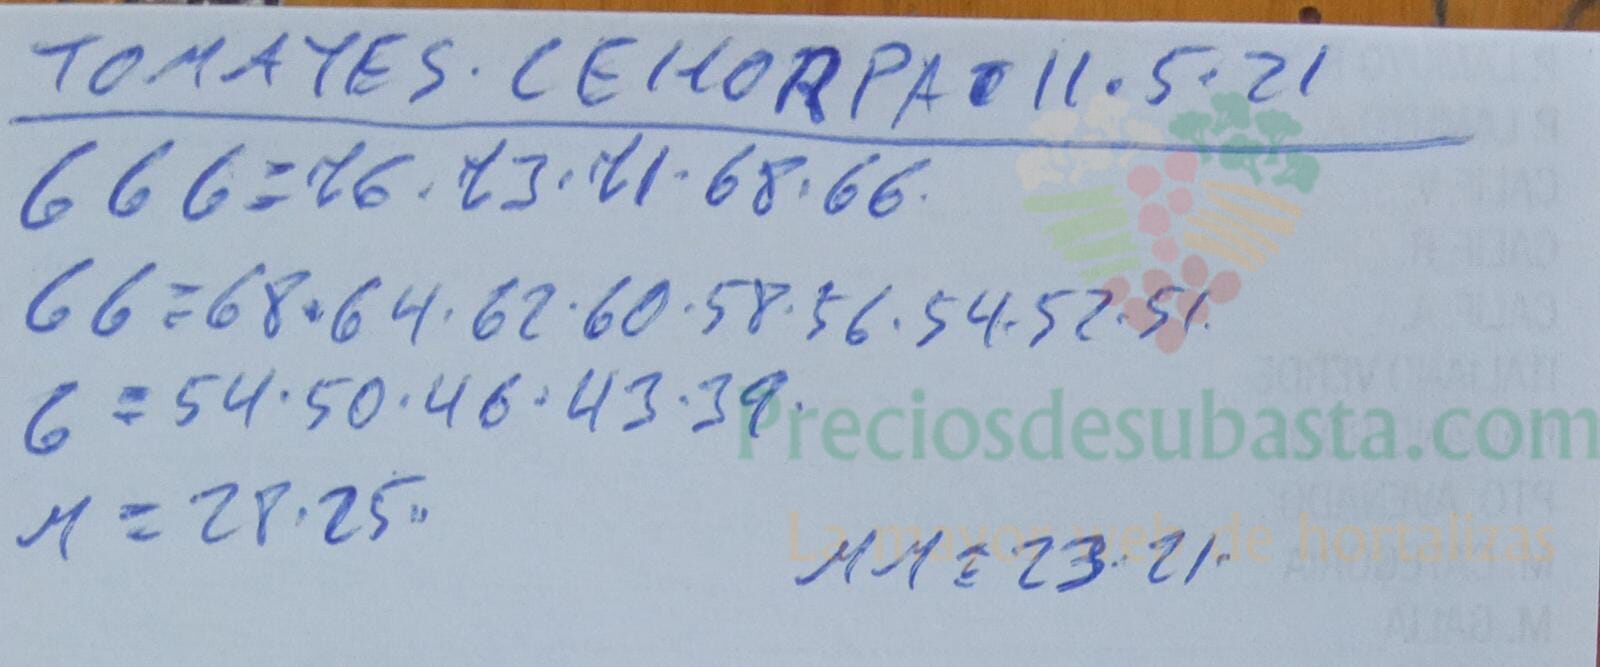 TOMATES. CEHORPA 11.5.21
GGG=76.73.71.68.66.
GG=68.64.62.60.58.56.54.52.51.
G=54.50.46.43.39.
Preciosdesubasta.com
M=28.25.
La mayor web de hortalizas
MM=23.21.
M. GALIA